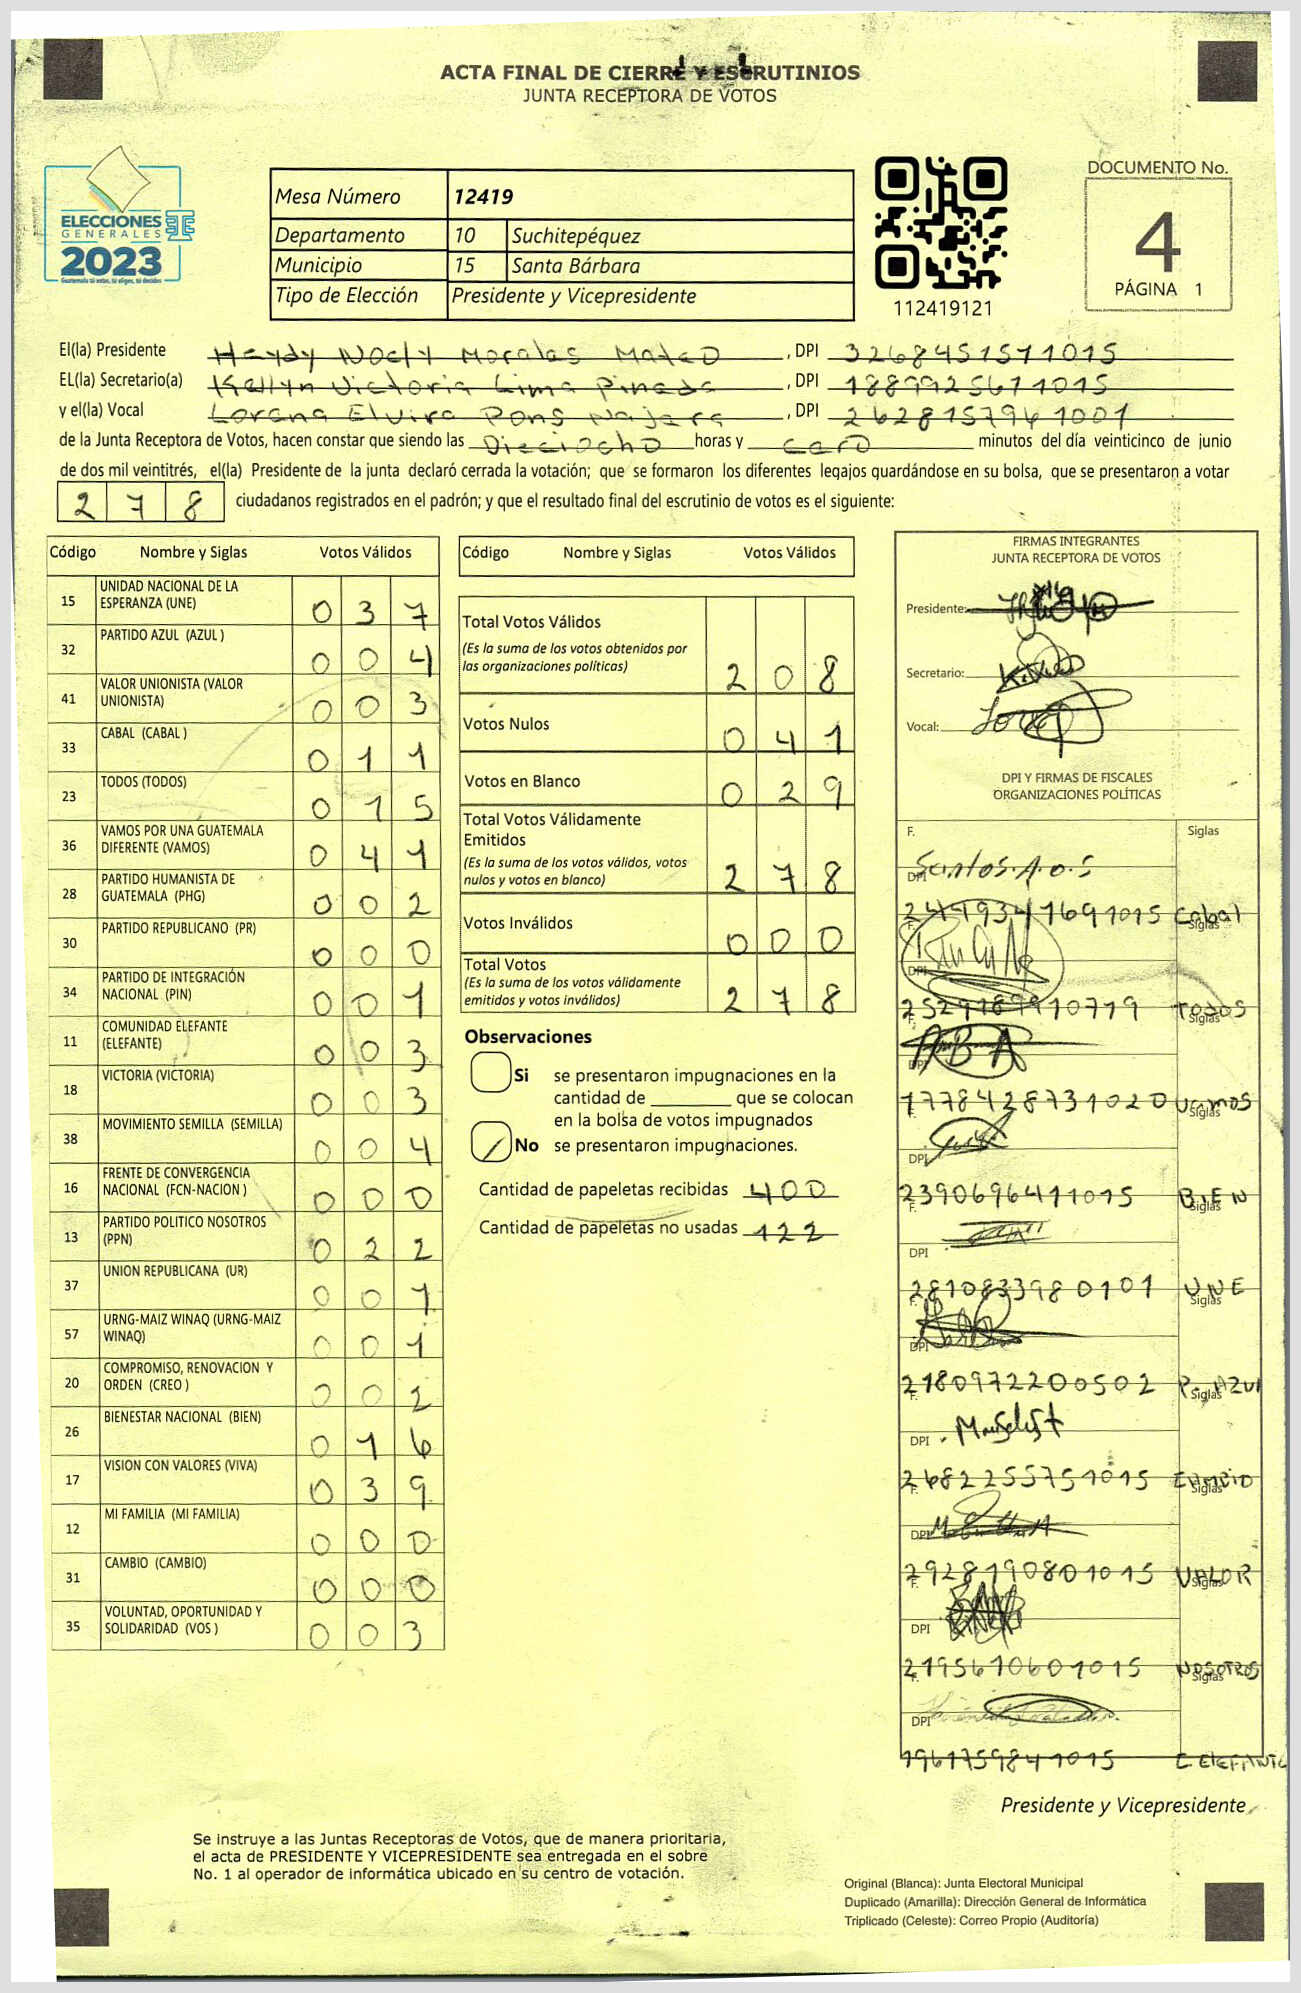 ACTA FINAL DE CIERRE Y ESCRUTINIOS
JUNTA RECEPTORA DE VOTOS
ELECCIONES
GENERALES
2023
Guatemala tú votas, tú eliges, tú decides
Mesa Número 12419
Departamento 10 Suchitepéquez
Municipio 15 Santa Bárbara
Tipo de Elección Presidente y Vicepresidente
112419121
DOCUMENTO No.
4
PÁGINA 1
El(la) Presidente Heydy Noely Morales Mateo, DPI 3268451571015
EL(la) Secretario(a) Kellyn Victoria Lima Pineda, DPI 1889925671015
y el(la) Vocal Lorena Elvira Pons Najera, DPI 2628157961001
de la Junta Receptora de Votos, hacen constar que siendo las Dieciocho horas y cero minutos del día veinticinco de junio
de dos mil veintitrés, el(la) Presidente de la junta declaró cerrada la votación; que se formaron los diferentes legajos guardándose en su bolsa, que se presentaron a votar
278 ciudadanos registrados en el padrón; y que el resultado final del escrutinio de votos es el siguiente:
Código Nombre y Siglas Votos Válidos
15 UNIDAD NACIONAL DE LA ESPERANZA (UNE) 037
32 PARTIDO AZUL (AZUL ) 004
41 VALOR UNIONISTA (VALOR UNIONISTA) 003
33 CABAL (CABAL ) 011
23 TODOS (TODOS) 015
36 VAMOS POR UNA GUATEMALA DIFERENTE (VAMOS) 041
28 PARTIDO HUMANISTA DE GUATEMALA (PHG) 002
30 PARTIDO REPUBLICANO (PR) 000
34 PARTIDO DE INTEGRACIÓN NACIONAL (PIN) 001
11 COMUNIDAD ELEFANTE (ELEFANTE) 003
18 VICTORIA (VICTORIA) 003
38 MOVIMIENTO SEMILLA (SEMILLA) 004
16 FRENTE DE CONVERGENCIA NACIONAL (FCN-NACION ) 000
13 PARTIDO POLITICO NOSOTROS (PPN) 022
37 UNION REPUBLICANA (UR) 001
57 URNG-MAIZ WINAQ (URNG-MAIZ WINAQ) 001
20 COMPROMISO, RENOVACION Y ORDEN (CREO ) 002
26 BIENESTAR NACIONAL (BIEN) 016
17 VISION CON VALORES (VIVA) 039
12 MI FAMILIA (MI FAMILIA) 000
31 CAMBIO (CAMBIO) 000
35 VOLUNTAD, OPORTUNIDAD Y SOLIDARIDAD (VOS ) 003
Código Nombre y Siglas Votos Válidos
Total Votos Válidos 208
(Es la suma de los votos obtenidos por
las organizaciones políticas)
Votos Nulos 041
Votos en Blanco 029
Total Votos Válidamente
Emitidos 278
(Es la suma de los votos válidos, votos
nulos y votos en blanco)
Votos Inválidos 000
Total Votos 278
(Es la suma de los votos válidamente
emitidos y votos inválidos)
Observaciones
Si se presentaron impugnaciones en la
cantidad de ________ que se colocan
en la bolsa de votos impugnados
No se presentaron impugnaciones.
Cantidad de papeletas recibidas 400
Cantidad de papeletas no usadas 122
FIRMAS INTEGRANTES
JUNTA RECEPTORA DE VOTOS
Presidente:
Secretario:
Vocal:
DPI Y FIRMAS DE FISCALES
ORGANIZACIONES POLÍTICAS
F. Siglas
Santos.A.o.S
DPI
2449347691015 Cabal
F. Siglas
DPI
2529189910719 TODOS
F. Siglas
DPI
1778428731020 Vamos
F. Siglas
DPI
2390696411015 BIEN
F. Siglas
DPI
2810833980101 UNE
F. Siglas
DPI
2180972200502 P. AZUl
F. Siglas
DPI
2682255751015 CAMBIO
F. Siglas
DPI
2928190801015 VALOR
F. Siglas
DPI
2195610601015 NOSOTROS
F. Siglas
DPI
1961759841015 C. ElEFANTE
Presidente y Vicepresidente
Se instruye a las Juntas Receptoras de Votos, que de manera prioritaria,
el acta de PRESIDENTE Y VICEPRESIDENTE sea entregada en el sobre
No. 1 al operador de informática ubicado en su centro de votación.
Original (Blanca): Junta Electoral Municipal
Duplicado (Amarilla): Dirección General de Informática
Triplicado (Celeste): Correo Propio (Auditoría)